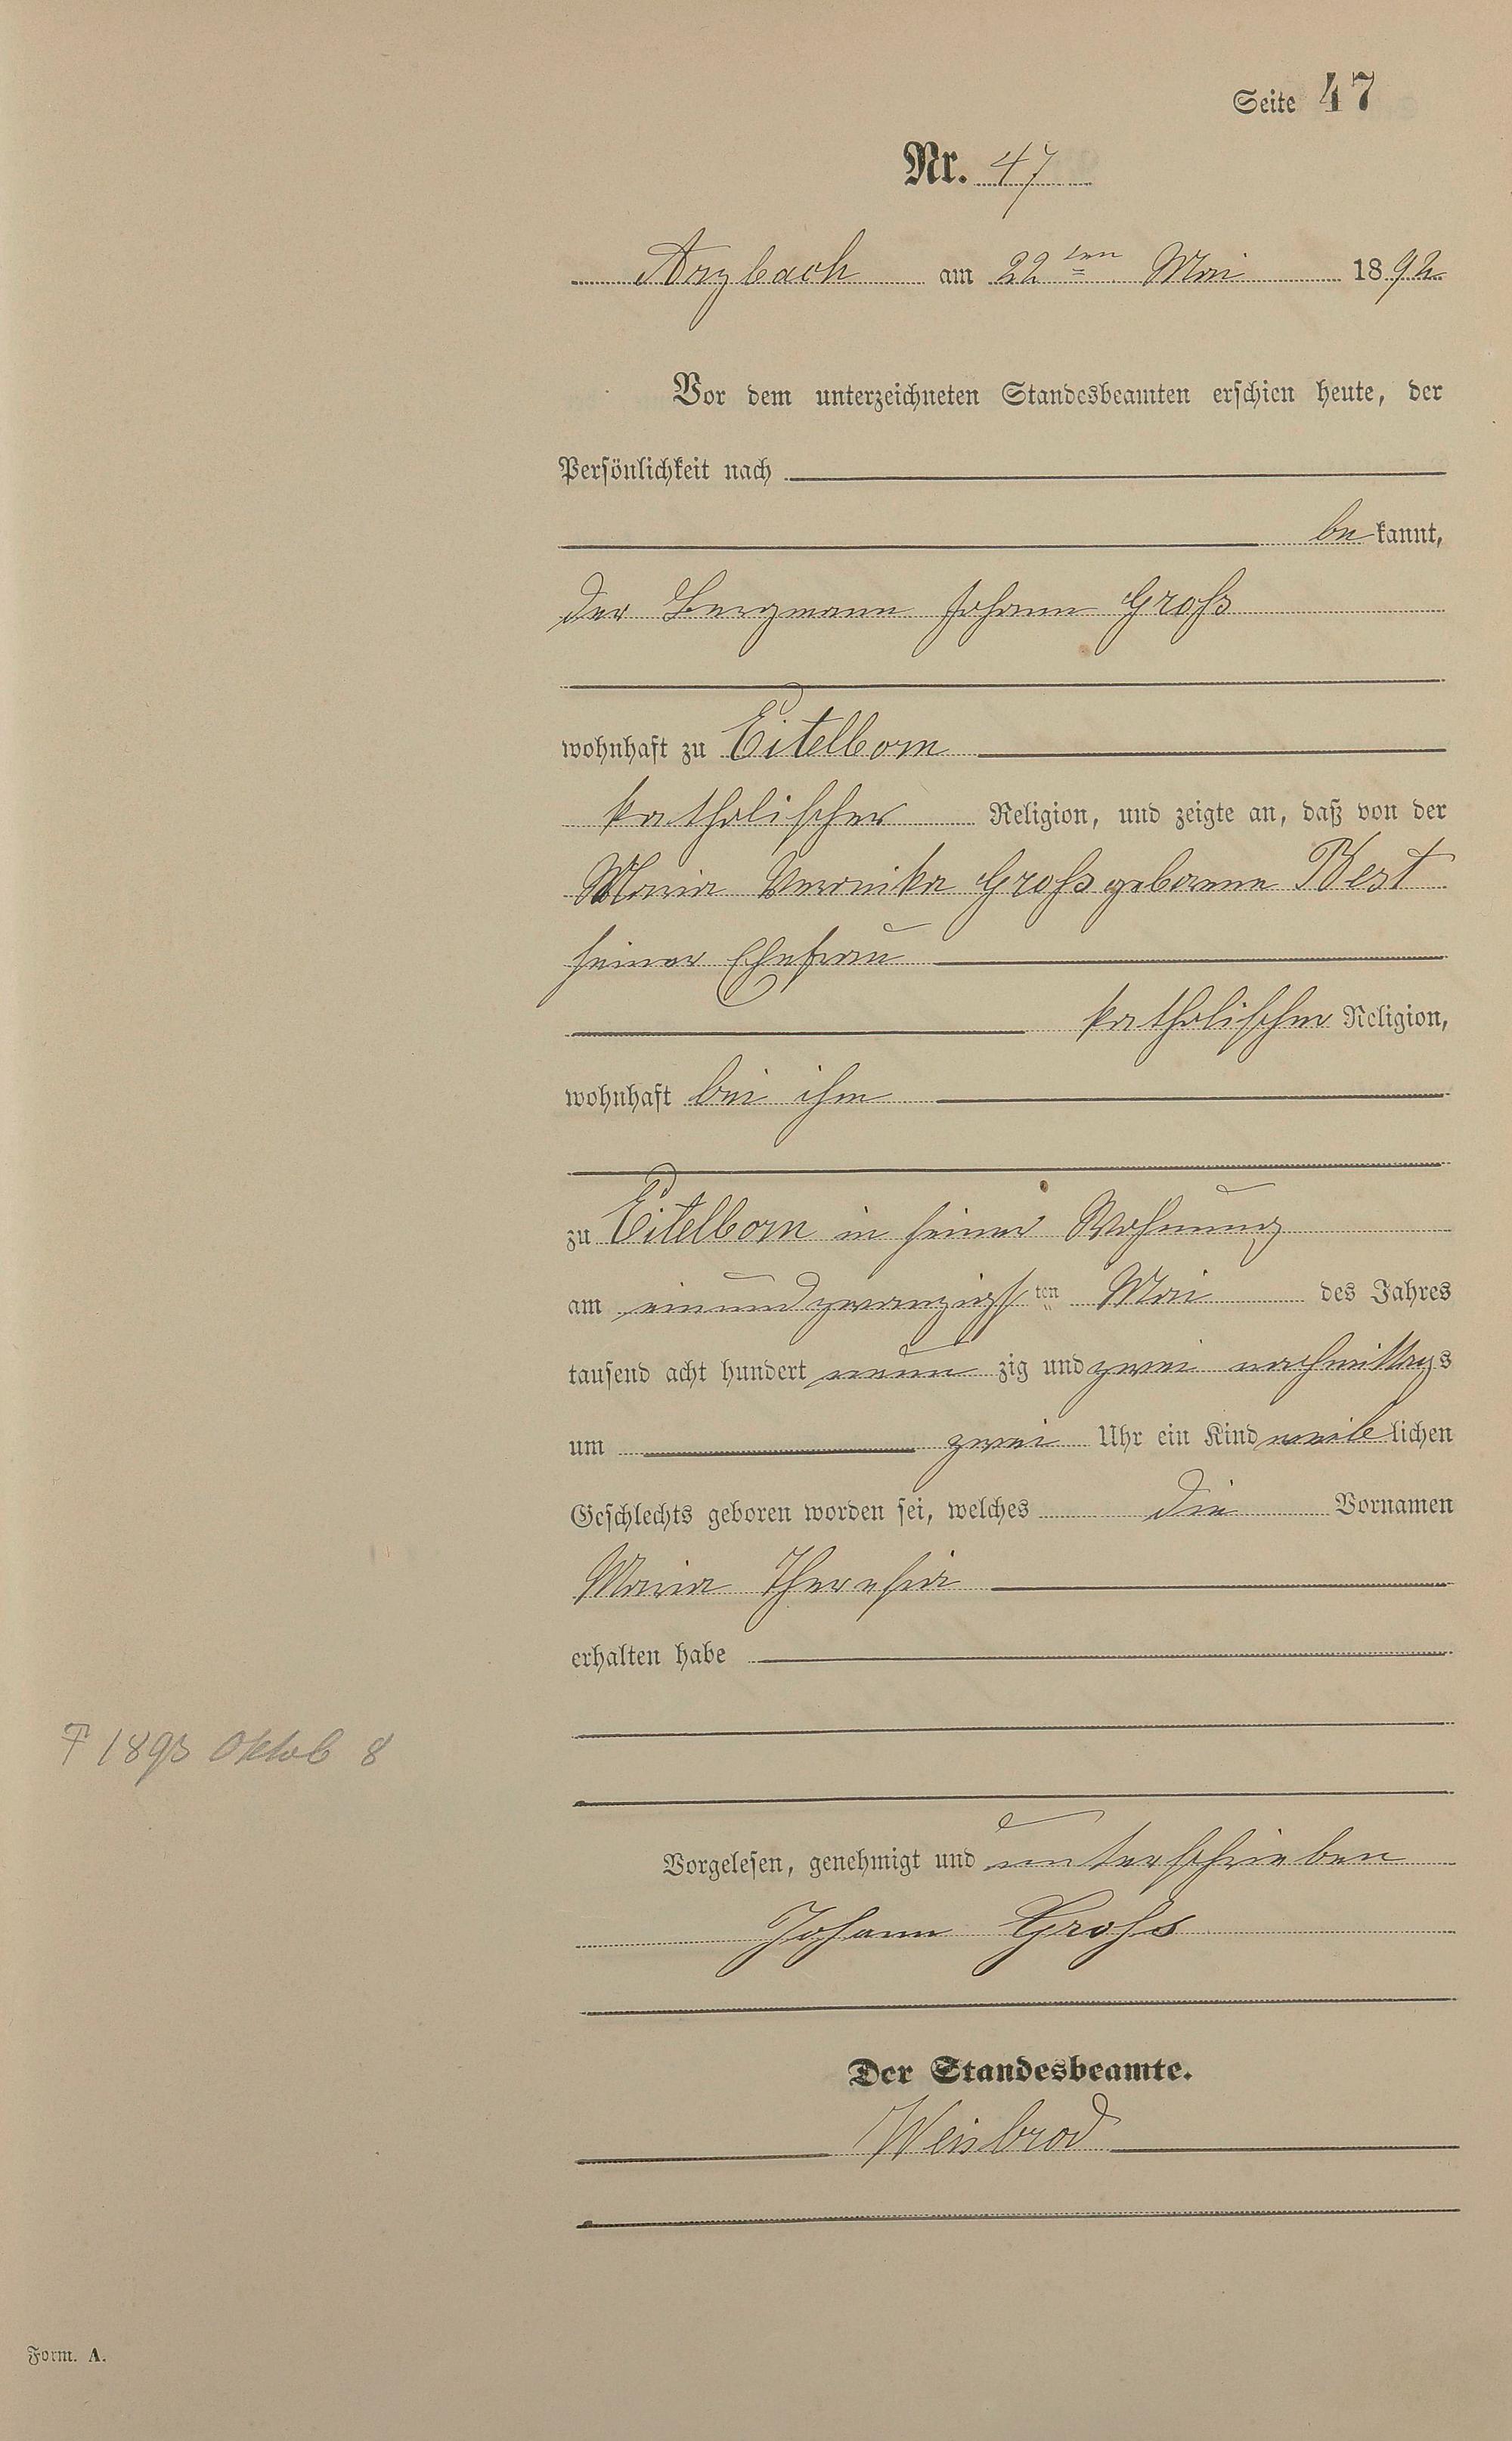 Seite 47
Nr. 47
Arzbach am 22ten Mai 1892
Vor dem unterzeichneten Standesbeamten erschien heute, der
Persönlichkeit nach
bekannt,
der Bergmann Johann Groß
wohnhaft zu Eitelborn
katholischer Religion, und zeigte an, daß von der
Maria Veronika Groß geborene Best
seiner Ehefrau
katholischer Religion,
wohnhaft bei ihm
zu Eitelborn in seiner Wohnung
am einundzwanzigsten Mai des Jahres
tausend acht hundert neunzig und zwei nachmittags
um zwei Uhr ein Kind weiblichen
Geschlechts geboren worden sei, welches die Vornamen
Maria Theresia
erhalten habe
† 1893 Oktob 8
Vorgelesen, genehmigt und unterschrieben
Johann Groß
Der Standesbeamte.
Weisbrod
Form. A.